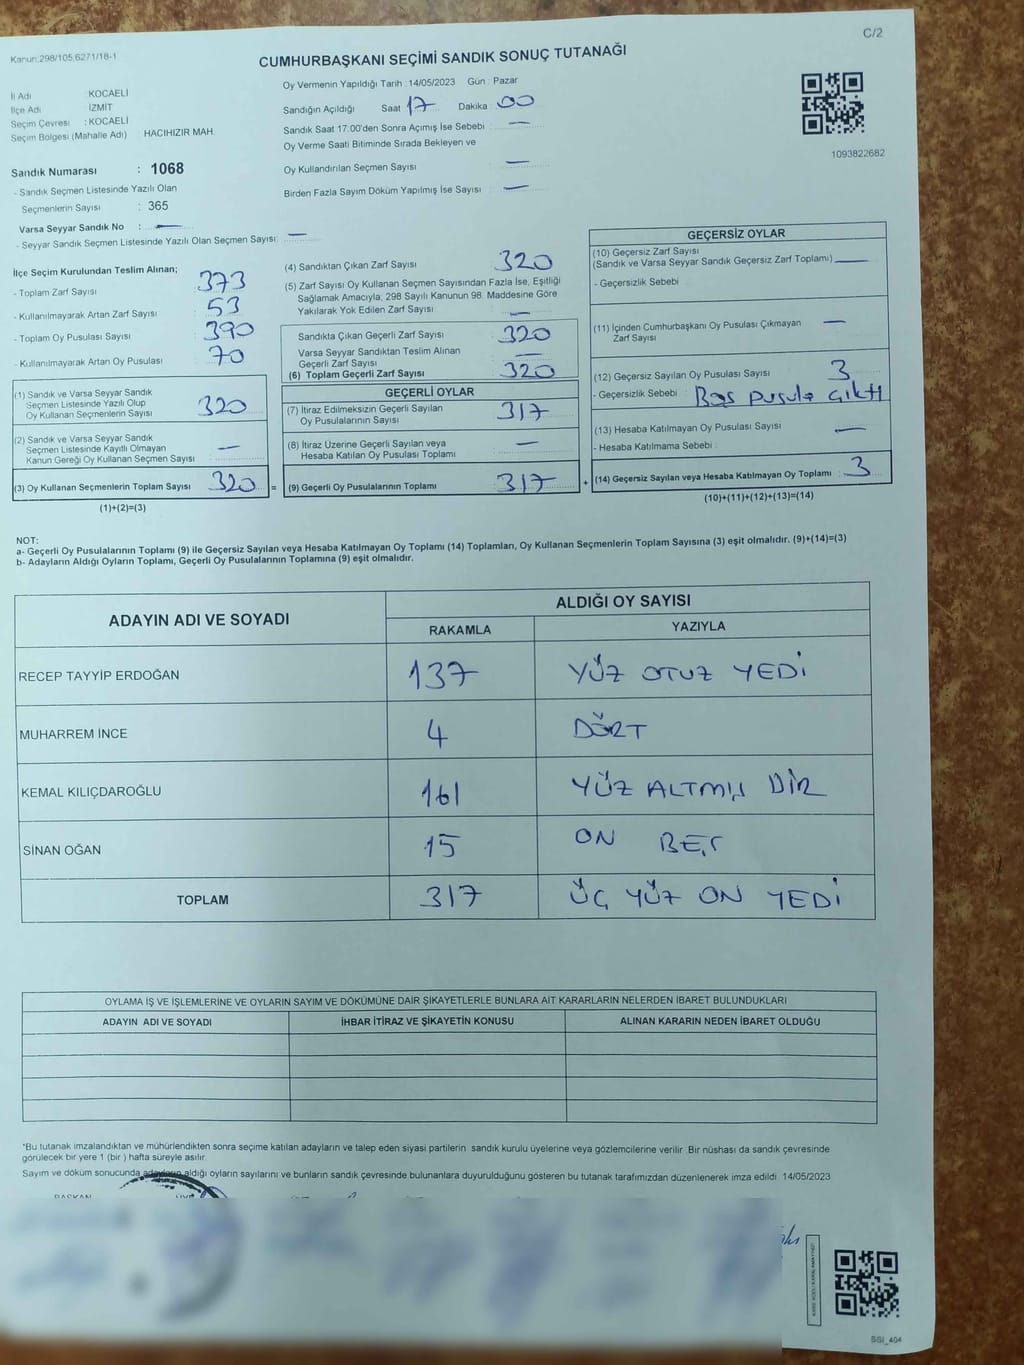 C/2
Kanun:298/105,6271/18-1
CUMHURBAŞKANI SEÇİMİ SANDIK SONUÇ TUTANAĞI
İl Adı KOCAELİ
İlçe Adı İZMİT
Seçim Çevresi : KOCAELİ
Seçim Bölgesi (Mahalle Adı) HACIHIZIR MAH.
Sandık Numarası : 1068
- Sandık Seçmen Listesinde Yazılı Olan
Seçmenlerin Sayısı : 365
Varsa Seyyar Sandık No : —
- Seyyar Sandık Seçmen Listesinde Yazılı Olan Seçmen Sayısı: —
Oy Vermenin Yapıldığı Tarih : 14/05/2023 Gün : Pazar
Sandığın Açıldığı Saat 17 Dakika 00
Sandık Saat 17:00'den Sonra Açımış İse Sebebi : —
Oy Verme Saati Bitiminde Sırada Bekleyen ve
Oy Kullandırılan Seçmen Sayısı : —
Birden Fazla Sayım Döküm Yapılmış İse Sayısı : —
1093822682
İlçe Seçim Kurulundan Teslim Alınan;
- Toplam Zarf Sayısı 373
- Kullanılmayarak Artan Zarf Sayısı 53
- Toplam Oy Pusulası Sayısı 390
- Kullanılmayarak Artan Oy Pusulası 70
(1) Sandık ve Varsa Seyyar Sandık
Seçmen Listesinde Yazılı Olup
Oy Kullanan Seçmenlerin Sayısı 320
(2) Sandık ve Varsa Seyyar Sandık
Seçmen Listesinde Kayıtlı Olmayan
Kanun Gereği Oy Kullanan Seçmen Sayısı —
(3) Oy Kullanan Seçmenlerin Toplam Sayısı 320 =
(1)+(2)=(3)
(4) Sandıktan Çıkan Zarf Sayısı 320
(5) Zarf Sayısı Oy Kullanan Seçmen Sayısından Fazla İse, Eşitliği
Sağlamak Amacıyla, 298 Sayılı Kanunun 98. Maddesine Göre
Yakılarak Yok Edilen Zarf Sayısı —
Sandıkta Çıkan Geçerli Zarf Sayısı 320
Varsa Seyyar Sandıktan Teslim Alınan
Geçerli Zarf Sayısı —
(6) Toplam Geçerli Zarf Sayısı 320
GEÇERLİ OYLAR
(7) İtiraz Edilmeksizin Geçerli Sayılan
Oy Pusulalarının Sayısı 317
(8) İtiraz Üzerine Geçerli Sayılan veya
Hesaba Katılan Oy Pusulası Toplamı —
(9) Geçerli Oy Pusulalarının Toplamı 317 +
GEÇERSİZ OYLAR
(10) Geçersiz Zarf Sayısı
(Sandık ve Varsa Seyyar Sandık Geçersiz Zarf Toplamı) —
- Geçersizlik Sebebi
(11) İçinden Cumhurbaşkanı Oy Pusulası Çıkmayan
Zarf Sayısı —
(12) Geçersiz Sayılan Oy Pusulası Sayısı 3
- Geçersizlik Sebebi Boş pusula çıktı
(13) Hesaba Katılmayan Oy Pusulası Sayısı —
- Hesaba Katılmama Sebebi :
(14) Geçersiz Sayılan veya Hesaba Katılmayan Oy Toplamı 3
(10)+(11)+(12)+(13)=(14)
NOT:
a- Geçerli Oy Pusulalarının Toplamı (9) ile Geçersiz Sayılan veya Hesaba Katılmayan Oy Toplamı (14) Toplamları, Oy Kullanan Seçmenlerin Toplam Sayısına (3) eşit olmalıdır. (9)+(14)=(3)
b- Adayların Aldığı Oyların Toplamı, Geçerli Oy Pusulalarının Toplamına (9) eşit olmalıdır.
ADAYIN ADI VE SOYADI ALDIĞI OY SAYISI
RAKAMLA YAZIYLA
RECEP TAYYİP ERDOĞAN 137 YÜZ OTUZ YEDİ
MUHARREM İNCE 4 DÖRT
KEMAL KILIÇDAROĞLU 161 YÜZ ALTMIŞ BİR
SİNAN OĞAN 15 ON BEŞ
TOPLAM 317 ÜÇ YÜZ ON YEDİ
OYLAMA İŞ VE İŞLEMLERİNE VE OYLARIN SAYIM VE DÖKÜMÜNE DAİR ŞİKAYETLERLE BUNLARA AİT KARARLARIN NELERDEN İBARET BULUNDUKLARI
ADAYIN ADI VE SOYADI İHBAR İTİRAZ VE ŞİKAYETİN KONUSU ALINAN KARARIN NEDEN İBARET OLDUĞU
*Bu tutanak imzalandıktan ve mühürlendikten sonra seçime katılan adayların ve talep eden siyasi partilerin sandık kurulu üyelerine veya gözlemcilerine verilir. Bir nüshası da sandık çevresinde
görülecek bir yere 1 (bir) hafta süreyle asılır.
Sayım ve döküm sonucunda adayların aldığı oyların sayılarını ve bunların sandık çevresinde bulunanlara duyurulduğunu gösteren bu tutanak tarafımızdan düzenlenerek imza edildi. 14/05/2023
BAŞKAN ÜYE
SSI_404